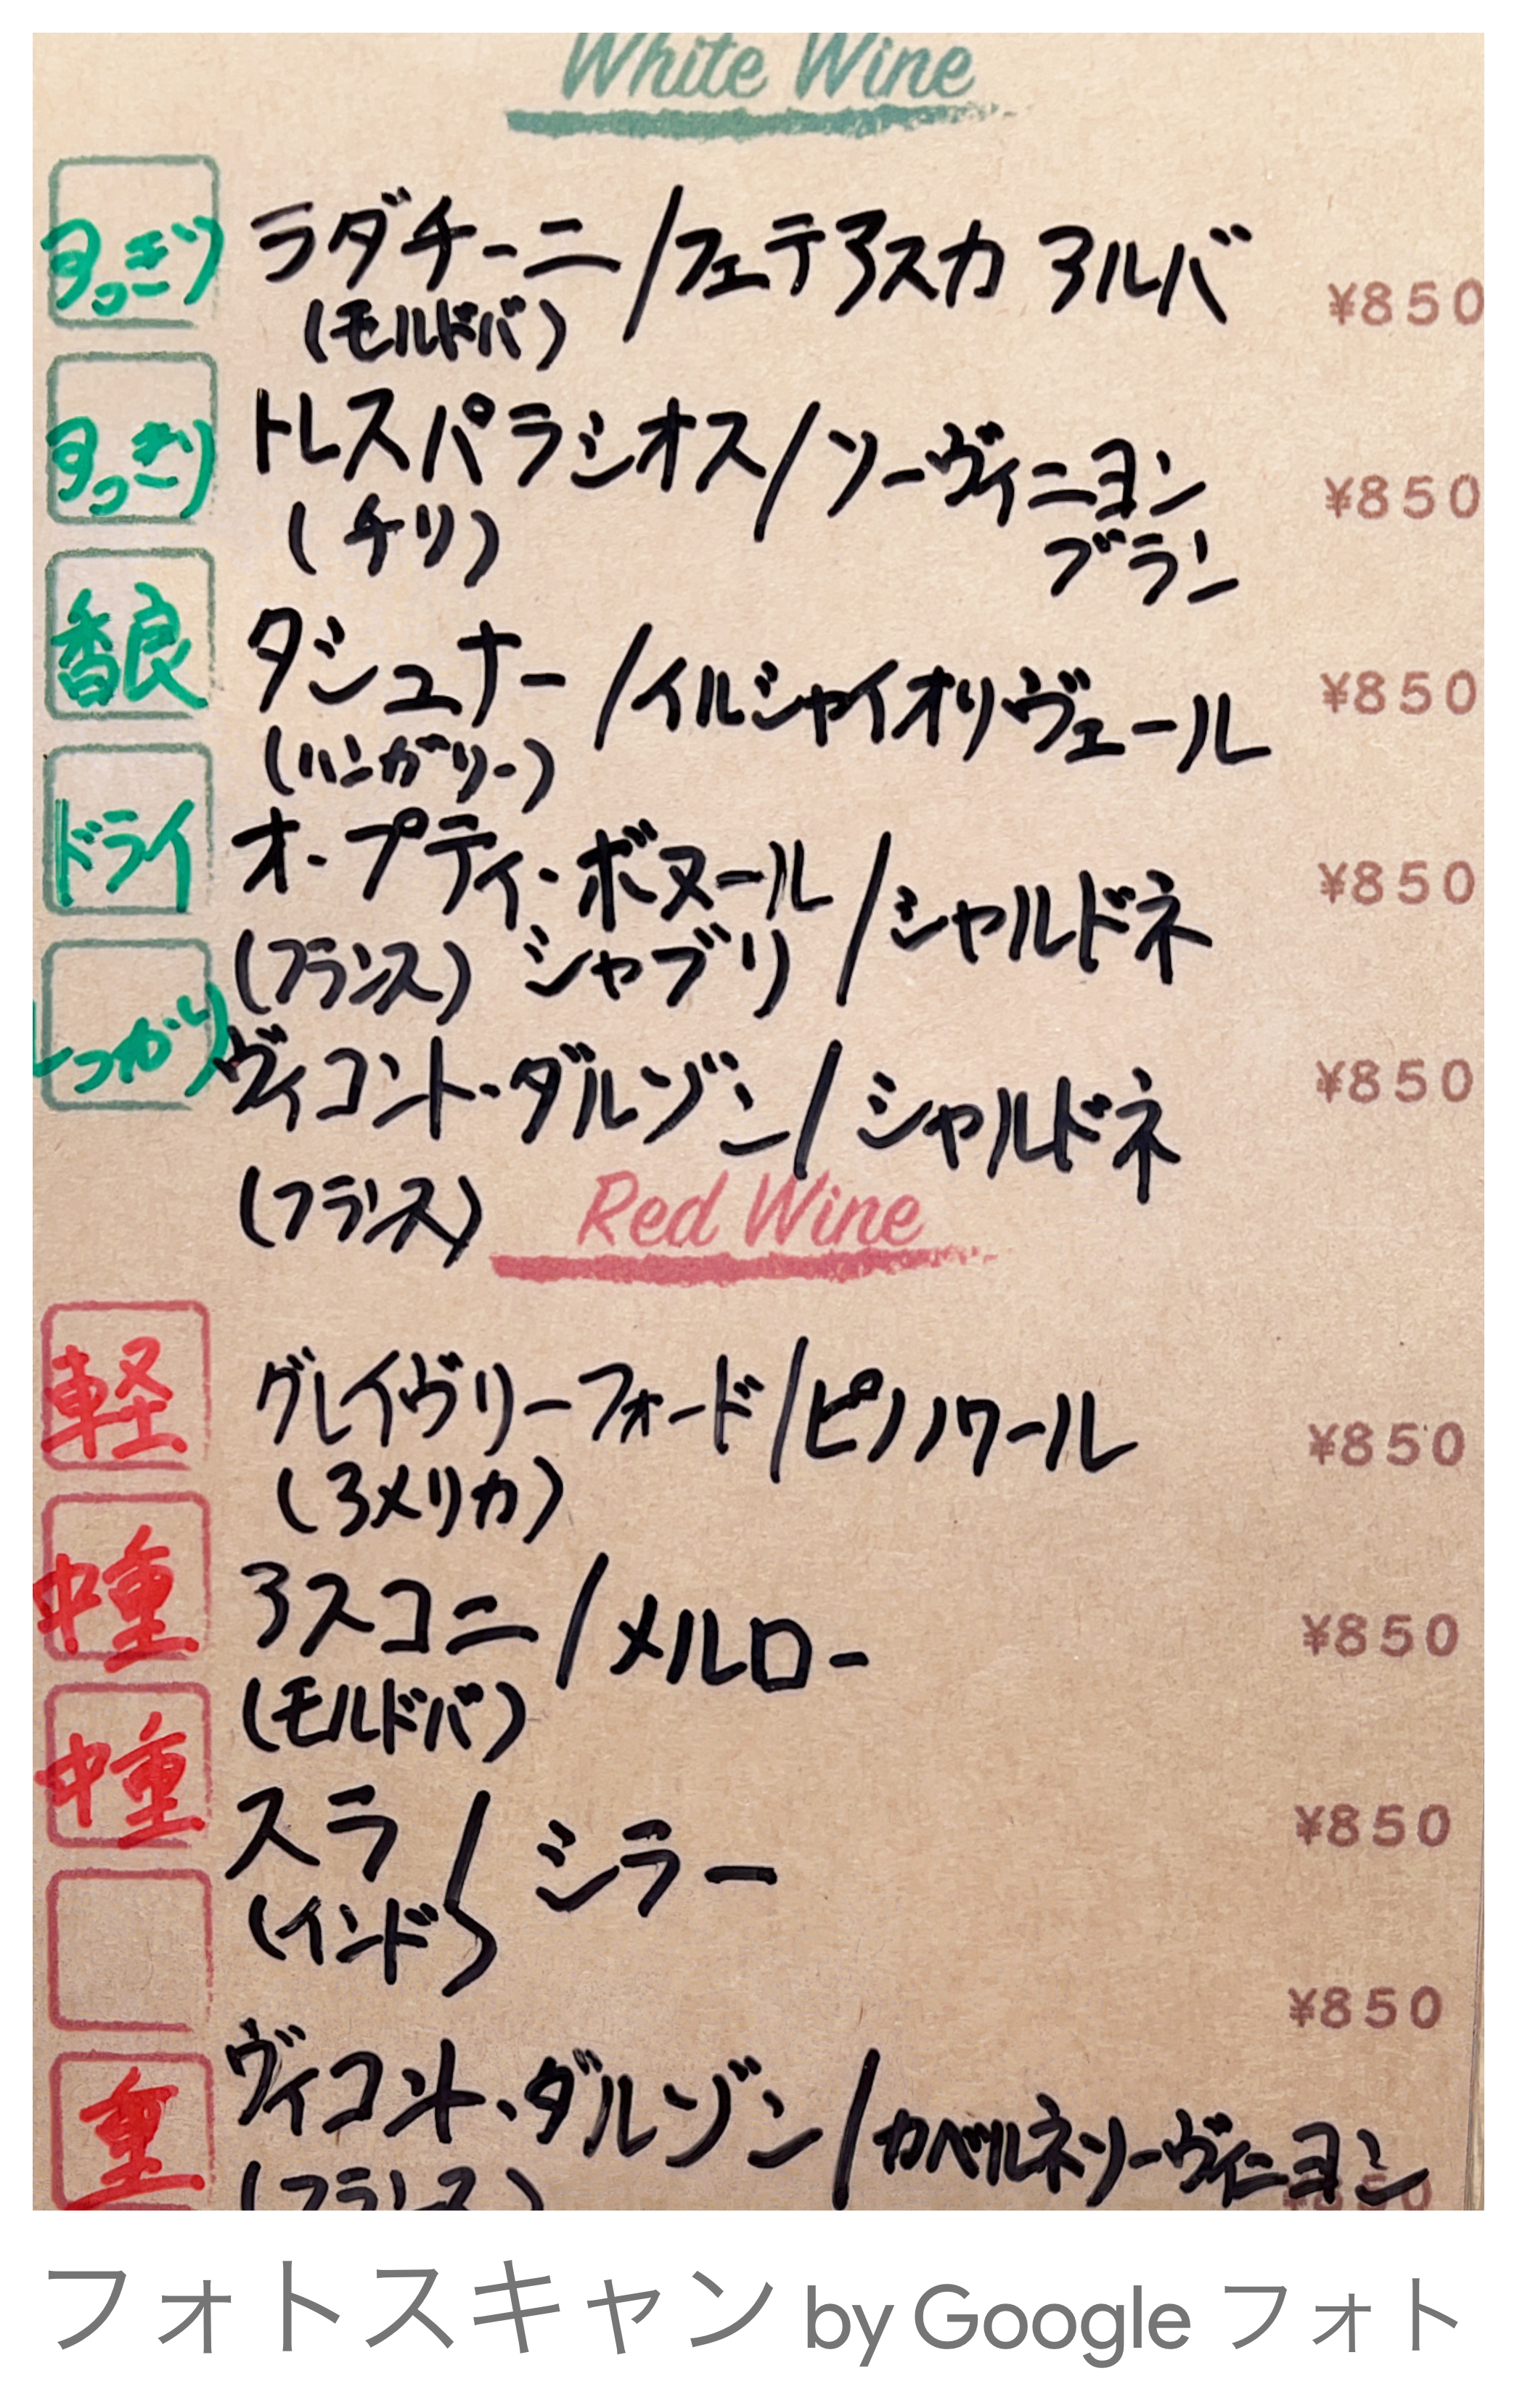 White Wine
すっきり ラダチーニ/フェテアスカ アルバ ¥850
(モルドバ)
すっきり トレスパラシオス/ソーヴィニヨン ¥850
(チリ) ブラン
香良 ダシュナー/イルシャイオリヴェール ¥850
(ハンガリー)
ドライ オー・プティ・ボヌール/シャルドネ ¥850
(フランス) シャブリ
しっかり ヴィコント・ダルゾン/シャルドネ ¥850
(フランス)
Red Wine
軽 グレイヴリーフォード/ピノノワール ¥850
(アメリカ)
中重 アスコニ/メルロー ¥850
(モルドバ)
中重 スラ/シラー ¥850
(インド)
¥850
重 ヴィコント・ダルゾン/カベルネソーヴィニヨン ¥850
(フランス)
フォトスキャン by Google フォト